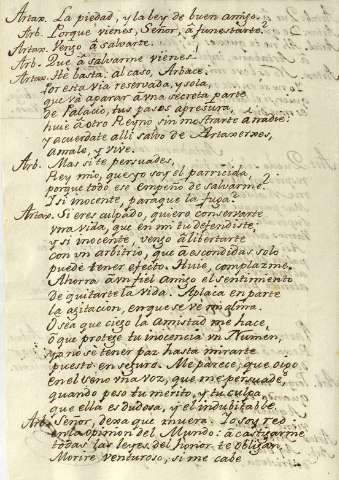 Artax. La piedad, y la ley de buen amigo.
Arb. Porque vienes, Señor, â funestarte?
Artax. Vengo â salvarte.
Arb. Que â salvarme vienes!
Artax. He basta: al caso, Arbace,
Por esta via reservada, y sola,
que vâ aparar â vna secreta parte
de Palacio, tus pasos apresura,
huie â otro Reyno sin mostrarte â nadie:
y acuerdate alli salvo de Artaxerxes,
amalo, y vive.
Arb. Mas si te persuades,
Rey mio, que yo soy el parricida,
porque todo ese empeño de salvarme?
Y si inocente, paraque la fuga?
Artax. Si eres culpado, quiero conservarte
vna vida, que en mi tu defendiste;
y si inocente, vengo â libertarte
con vn arbitrio, que â escondidas solo
puede tener efecto. Huie, complazme.
Ahorra â vn fiel amigo el sentimento
de quitarte la vida. Aplaca en parte
la agitacion, en que se ve mi alma.
O sea que ciego la amistad me hace,
ô que protege tu inocencia vn Numen,
yo no se tener paz hasta mirarte
puesto en seguro. Me parece, que oigo
en el seno vna voz, que me persuade,
quando peso tu merito, y tu culpa,
que ella es dudosa, y el indubitable.
Arb. Señor, dexa que muera. Yo soy reo
en la opinion del Mundo: â castigarme
todas las leyes del honor te obligan.
Morire venturoso, si me cabe